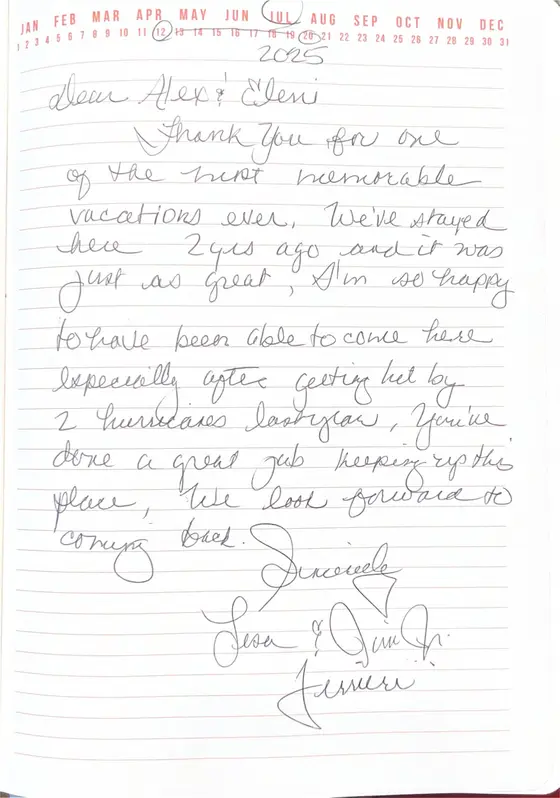 JAN FEB MAR APR MAY JUN JUL AUG SEP OCT NOV DEC
1 2 3 4 5 6 7 8 9 10 11 12 13 14 15 16 17 18 19 20 21 22 23 24 25 26 27 28 29 30 31
2025
Dear Alex & Eleni
Thank You for one
of the most memorable
vacations ever. We've stayed
here 2 yrs ago and it was
just as great, I'm so happy
to have been able to come here
especially after getting hit by
2 hurricanes last year, You've
done a great job keeping up this
place, We look forward to
coming back.
Sincerely
Lesa & Jim Jr.